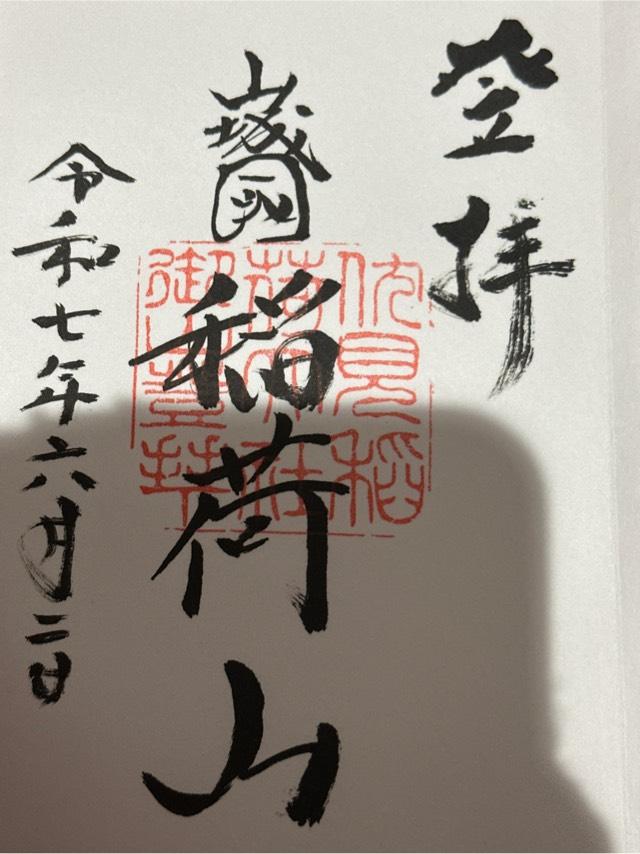 登拝
山城國
稲荷山
令和七年六月二日
伏見稲
荷大社